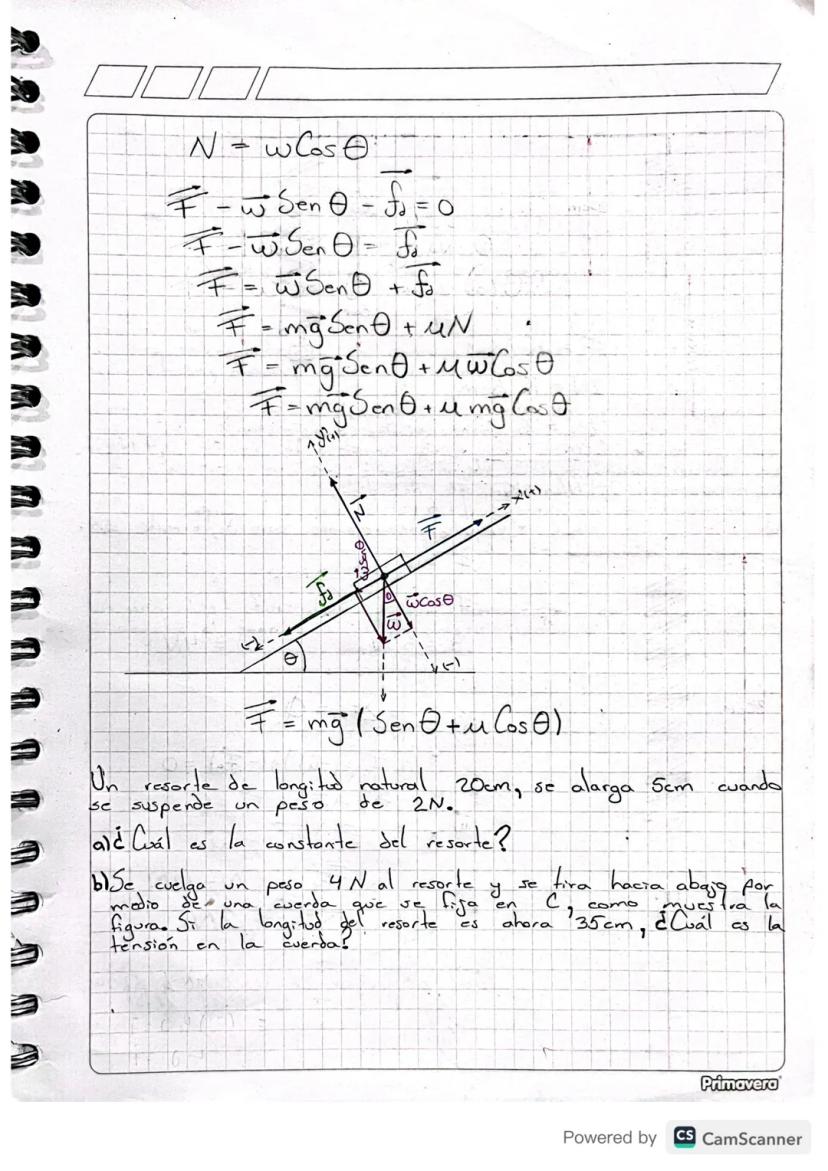 N = ωCosθ
F⃗ - ω⃗ Senθ - f⃗d = 0
F⃗ - ω⃗ Senθ = f⃗d
F⃗ = ω⃗ Senθ + f⃗d
F⃗ = mg⃗ Senθ + μN
F⃗ = mg⃗ Senθ + μ ω⃗ Cosθ
F⃗ = mg⃗ Senθ + μ mg⃗ Cosθ
y(+)
N⃗
F⃗
x(+)
ω⃗ Senθ
f⃗d
θ
ω⃗ Cosθ
ω⃗
(-)
θ
(-)
F⃗ = mg⃗ (Senθ + μ Cosθ)
Un resorte de longitud natural 20cm, se alarga 5cm cuando
se suspende un peso de 2N.
a) ¿Cuál es la constante del resorte?
b) Se cuelga un peso 4N al resorte y se tira hacia abajo por
medio de una cuerda que se fija en C, como muestra la
figura. Si la longitud del resorte es ahora 35cm, ¿Cuál es la
tensión en la cuerda?
Primavera
Powered by CS CamScanner